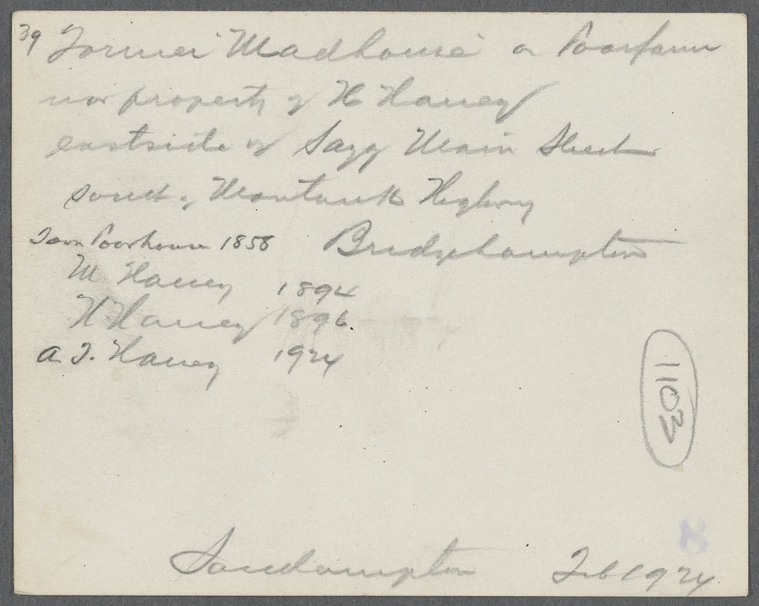 39 Former "Madhouse" or Poorfarm
now property of H Haney
eastside of Sagg Main Street
south of Montauk Highway
Town Poorhouse 1858 Bridgehampton
M Haney 1894
H Haney 1896.
A. T. Haney 1924
1103
8
Southampton Feb 1924